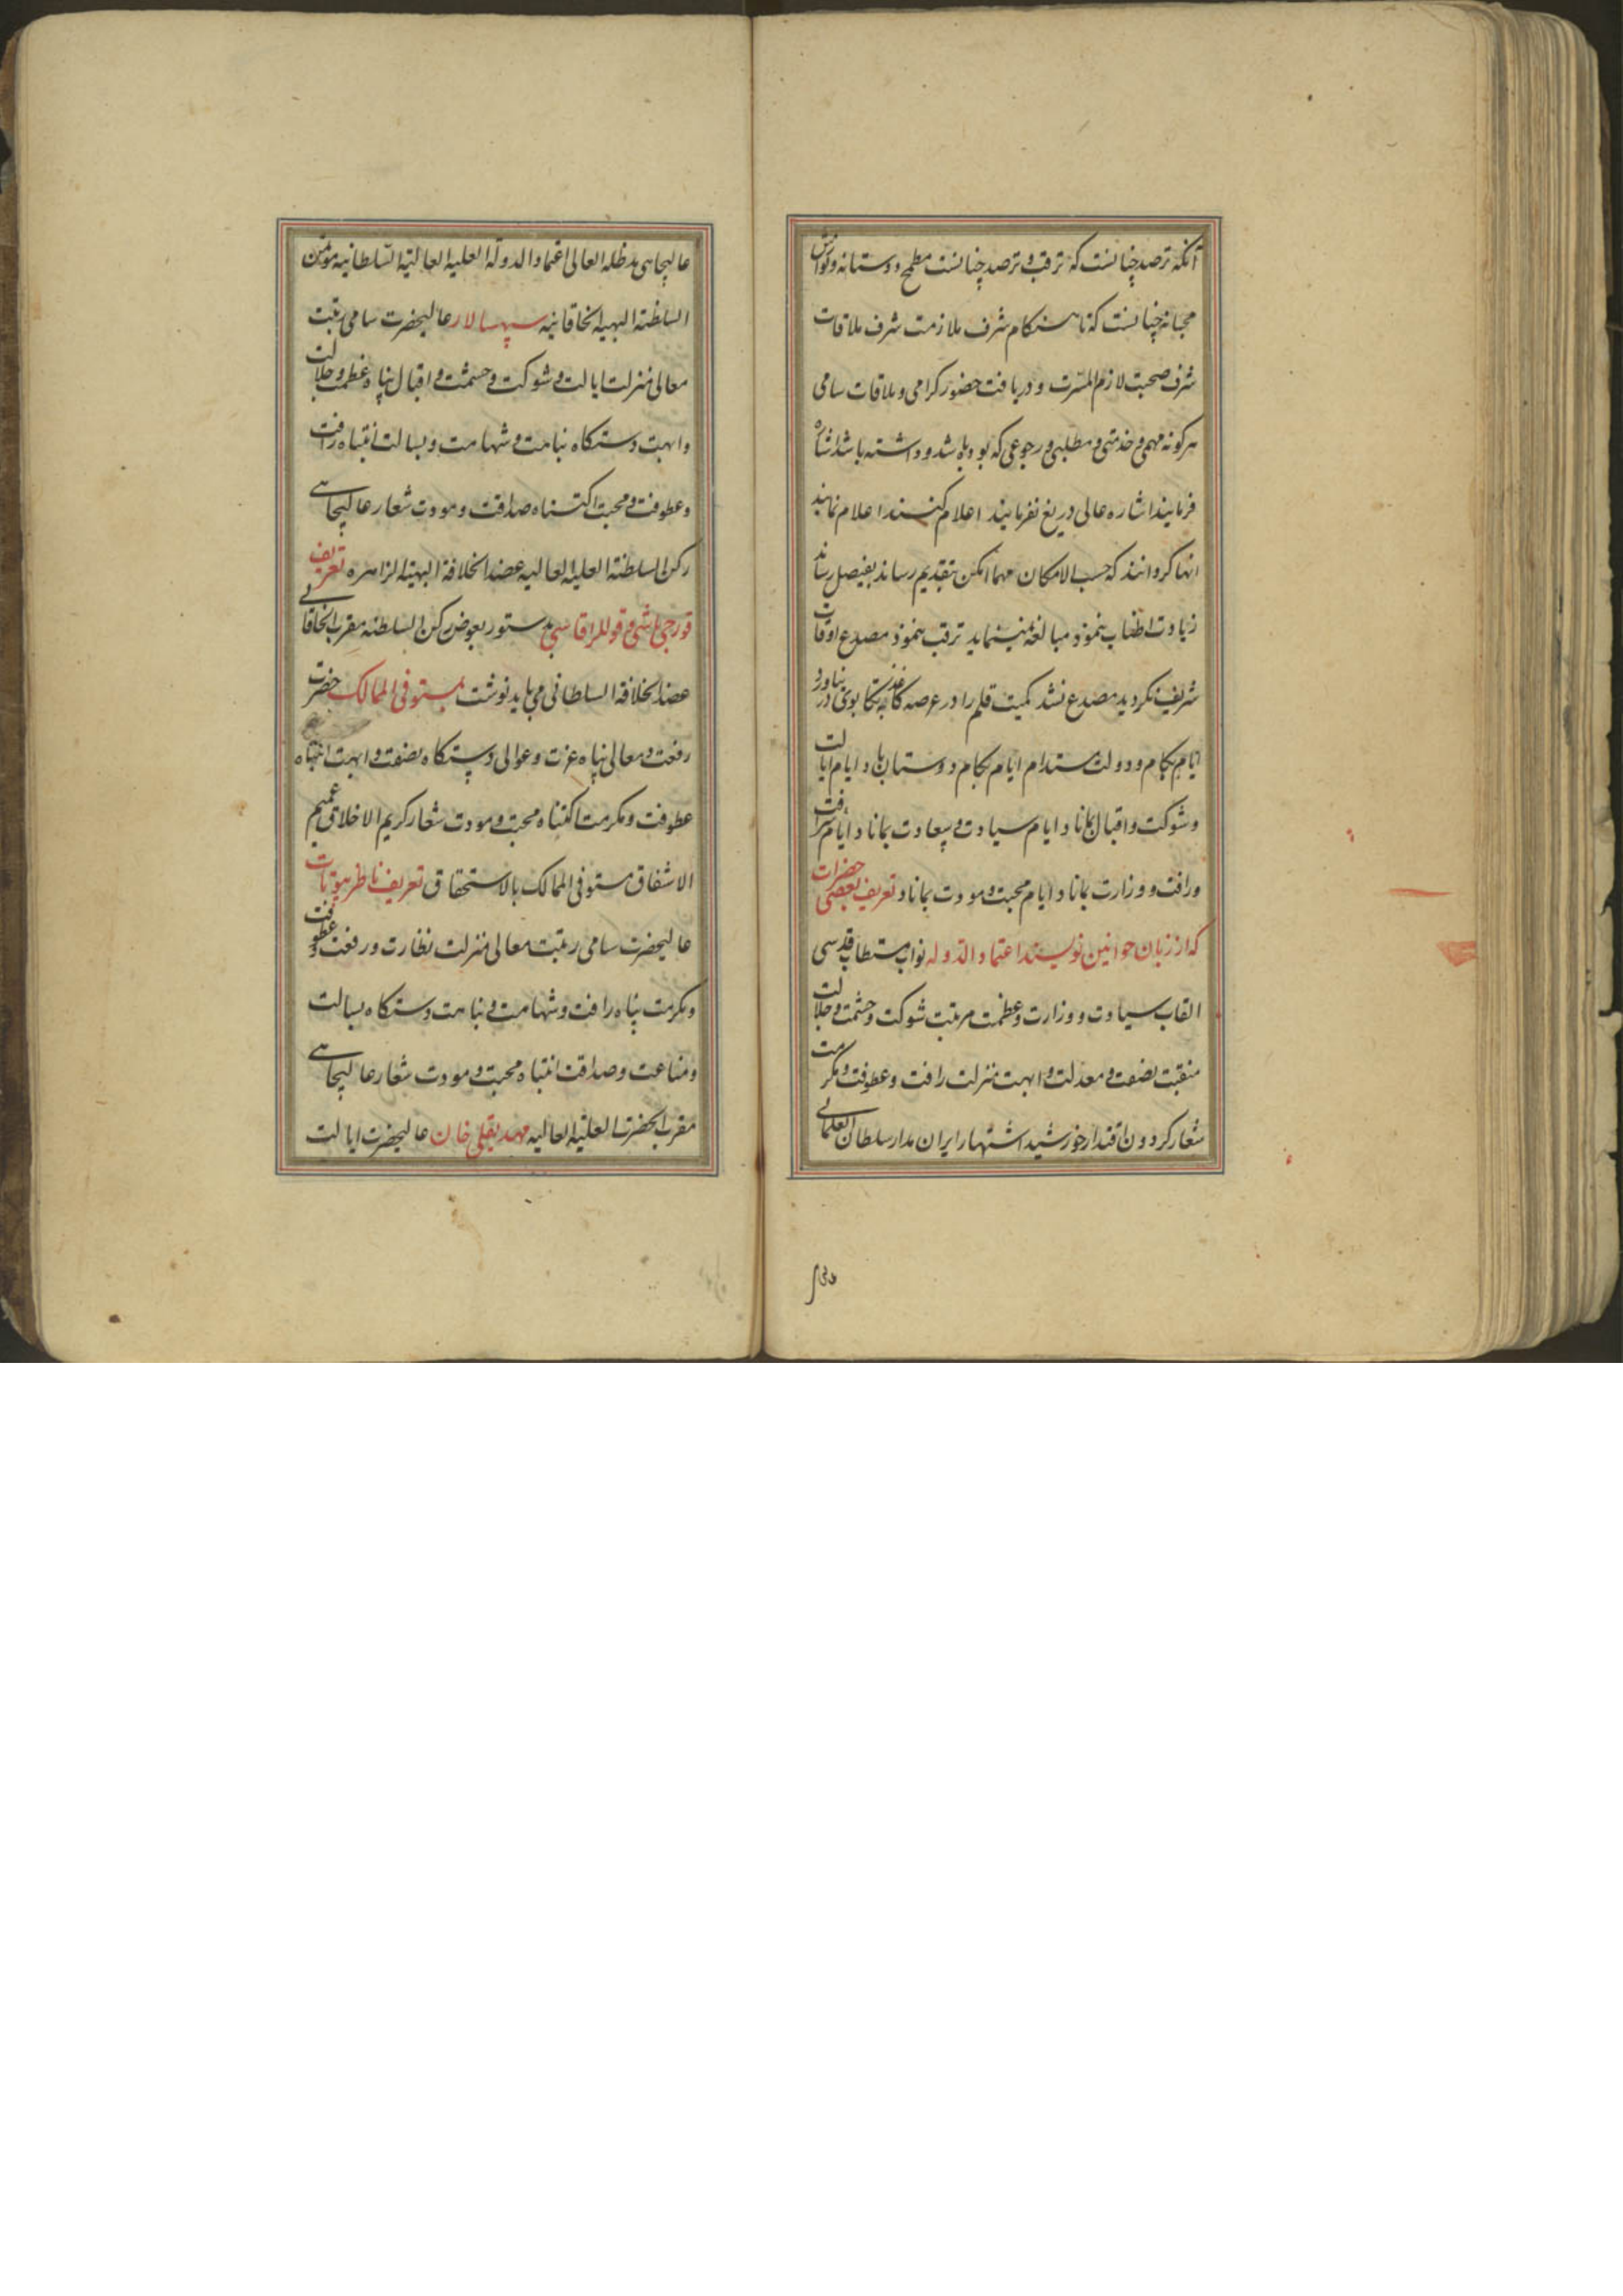 آنکه ترصد چنانست که ترقب و ترصد چنانست مطمح دوستانه و نوازش
محبانه چنانست که تا هنگام شرف ملازمت شرف ملاقات
شرف صحبت لازم المسرت و دریافت حضور کرامی و ملاقات سامی
هرکونه مهمی و خدمتی و مطلبی و رجوعی که بوده باشد و داشته باشد اشاره
فرمایند اشاره عالی دریغ نفرمایند اعلام کنند اعلام نمایند
انها کردانند که حسب الامکان مهما امکن بتقدیم رساند بفیصل رساند
زیادت اطناب ننمود مبالغه نمینماید ترقب ننمود مصدع اوقات
شریف نکردید مصدع نشد کمیت قلم را در عرصه کاغذ بتکابوی در نیاورد
ایام بکام و دولت مستدام ایام بکام دوستان باد ایام ایالت
و شوکت و اقبال بماناد ایام سیادت و سعادت بماناد ایام شرافت
و رافت و وزارت بماناد ایام محبت و مودت بماناد تعریف بعضی حضرات
که از زبان خوانین نویسند اعتماد الدوله نواب مستطاب قدسی
القاب سیادت و وزارت و عظمت مرتبت شوکت و حشمت و جلالت
منقبت نصفت و معدلت و ابهت منزلت رافت و عطوفت و مکرمت
شعار کردون اقتدار خورشید اشتهار ایران مدار سلطان العلمائی
عالیجاهی مدظله العالی اعتماد الدولة العلیة العالیة السلطانیه مؤتمن
السلطنة البهیة الخاقانیه سپهسالار عالیحضرت سامی رتبت
معالی منزلت ایالت و شوکت و حشمت و اقبال پناه عظمت و جلالت
و ابهت دستکاه نباهت و شهامت و بسالت انتباه رافت
و عطوفت و محبت اکتناه صداقت و مودت شعار عالیجاهی
رکن السلطنة العلیة العالیه عضد الخلافة البهیة الزاهره تعریف
قورچی باشی و قوللر اقاسی بدستور بعوض رکن السلطنه مقرب الخاقانی
عضد الخلافة السلطانی می باید نوشت مستوفی الممالک حضرت
رفعت و معالی پناه عزت و عوالی دستکاه نصفت و ابهت انتباه
عطوفت و مکرمت اکتناه محبت و مودت شعار کریم الاخلاق عمیم
الاشفاق مستوفی الممالک بالاستحقاق تعریف ناظر بیوتات
عالیحضرت سامی رتبت معالی منزلت نظارت و رفعت و عطوفت
و مکرمت پناه رافت و شهامت و نباهت دستکاه بسالت
و مناعت و صداقت انتباه محبت و مودت شعار عالیجاهی
مقرب الحضرت العلیة العالیه مهدیقلی خان عالیحضرت ایالت